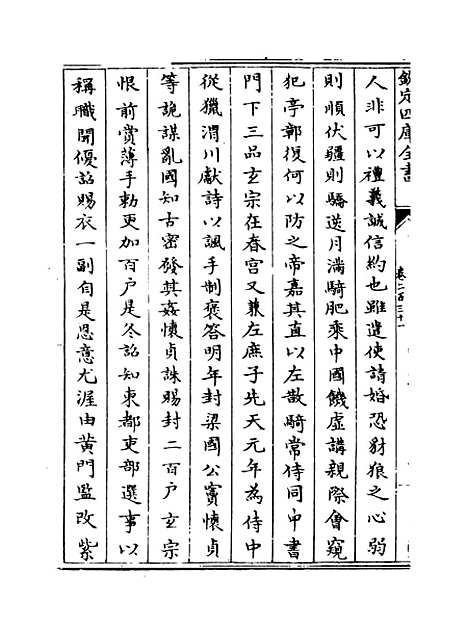 欽定四庫全書
卷二百三十一
人非可以禮義誠信約也雖遣使請婚恐豺狼之心弱
則順伏彊則驕逆月滿騎肥乘中國饑虛講親際會窺
犯亭鄣復何以防之帝嘉其直以左散騎常侍同中書
門下三品玄宗在春宮又兼左庶子先天元年為侍中
從獵渭川獻詩以諷手制褒答明年封梁國公竇懷貞
等詭謀亂國知古密發其姦懷貞誅賜封二百户玄宗
恨前賞薄手敕更加百户是冬詔知東都吏部選事以
稱職聞優詔賜衣一副自是恩意尤渥由黄門監改紫